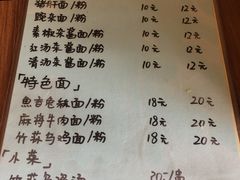 猪肝面/粉 10元 12元
豌杂面/粉 10元 12元
素椒杂酱面/粉 10元 12元
红汤杂酱面/粉 10元 12元
清汤杂酱面/粉 10元 12元
「特色面」
鱼香兔丝面/粉 18元 20元
麻将牛肉面/粉 18元 20元
竹荪乌鸡面/粉 18元 20元
「小菜」
竹荪乌鸡汤